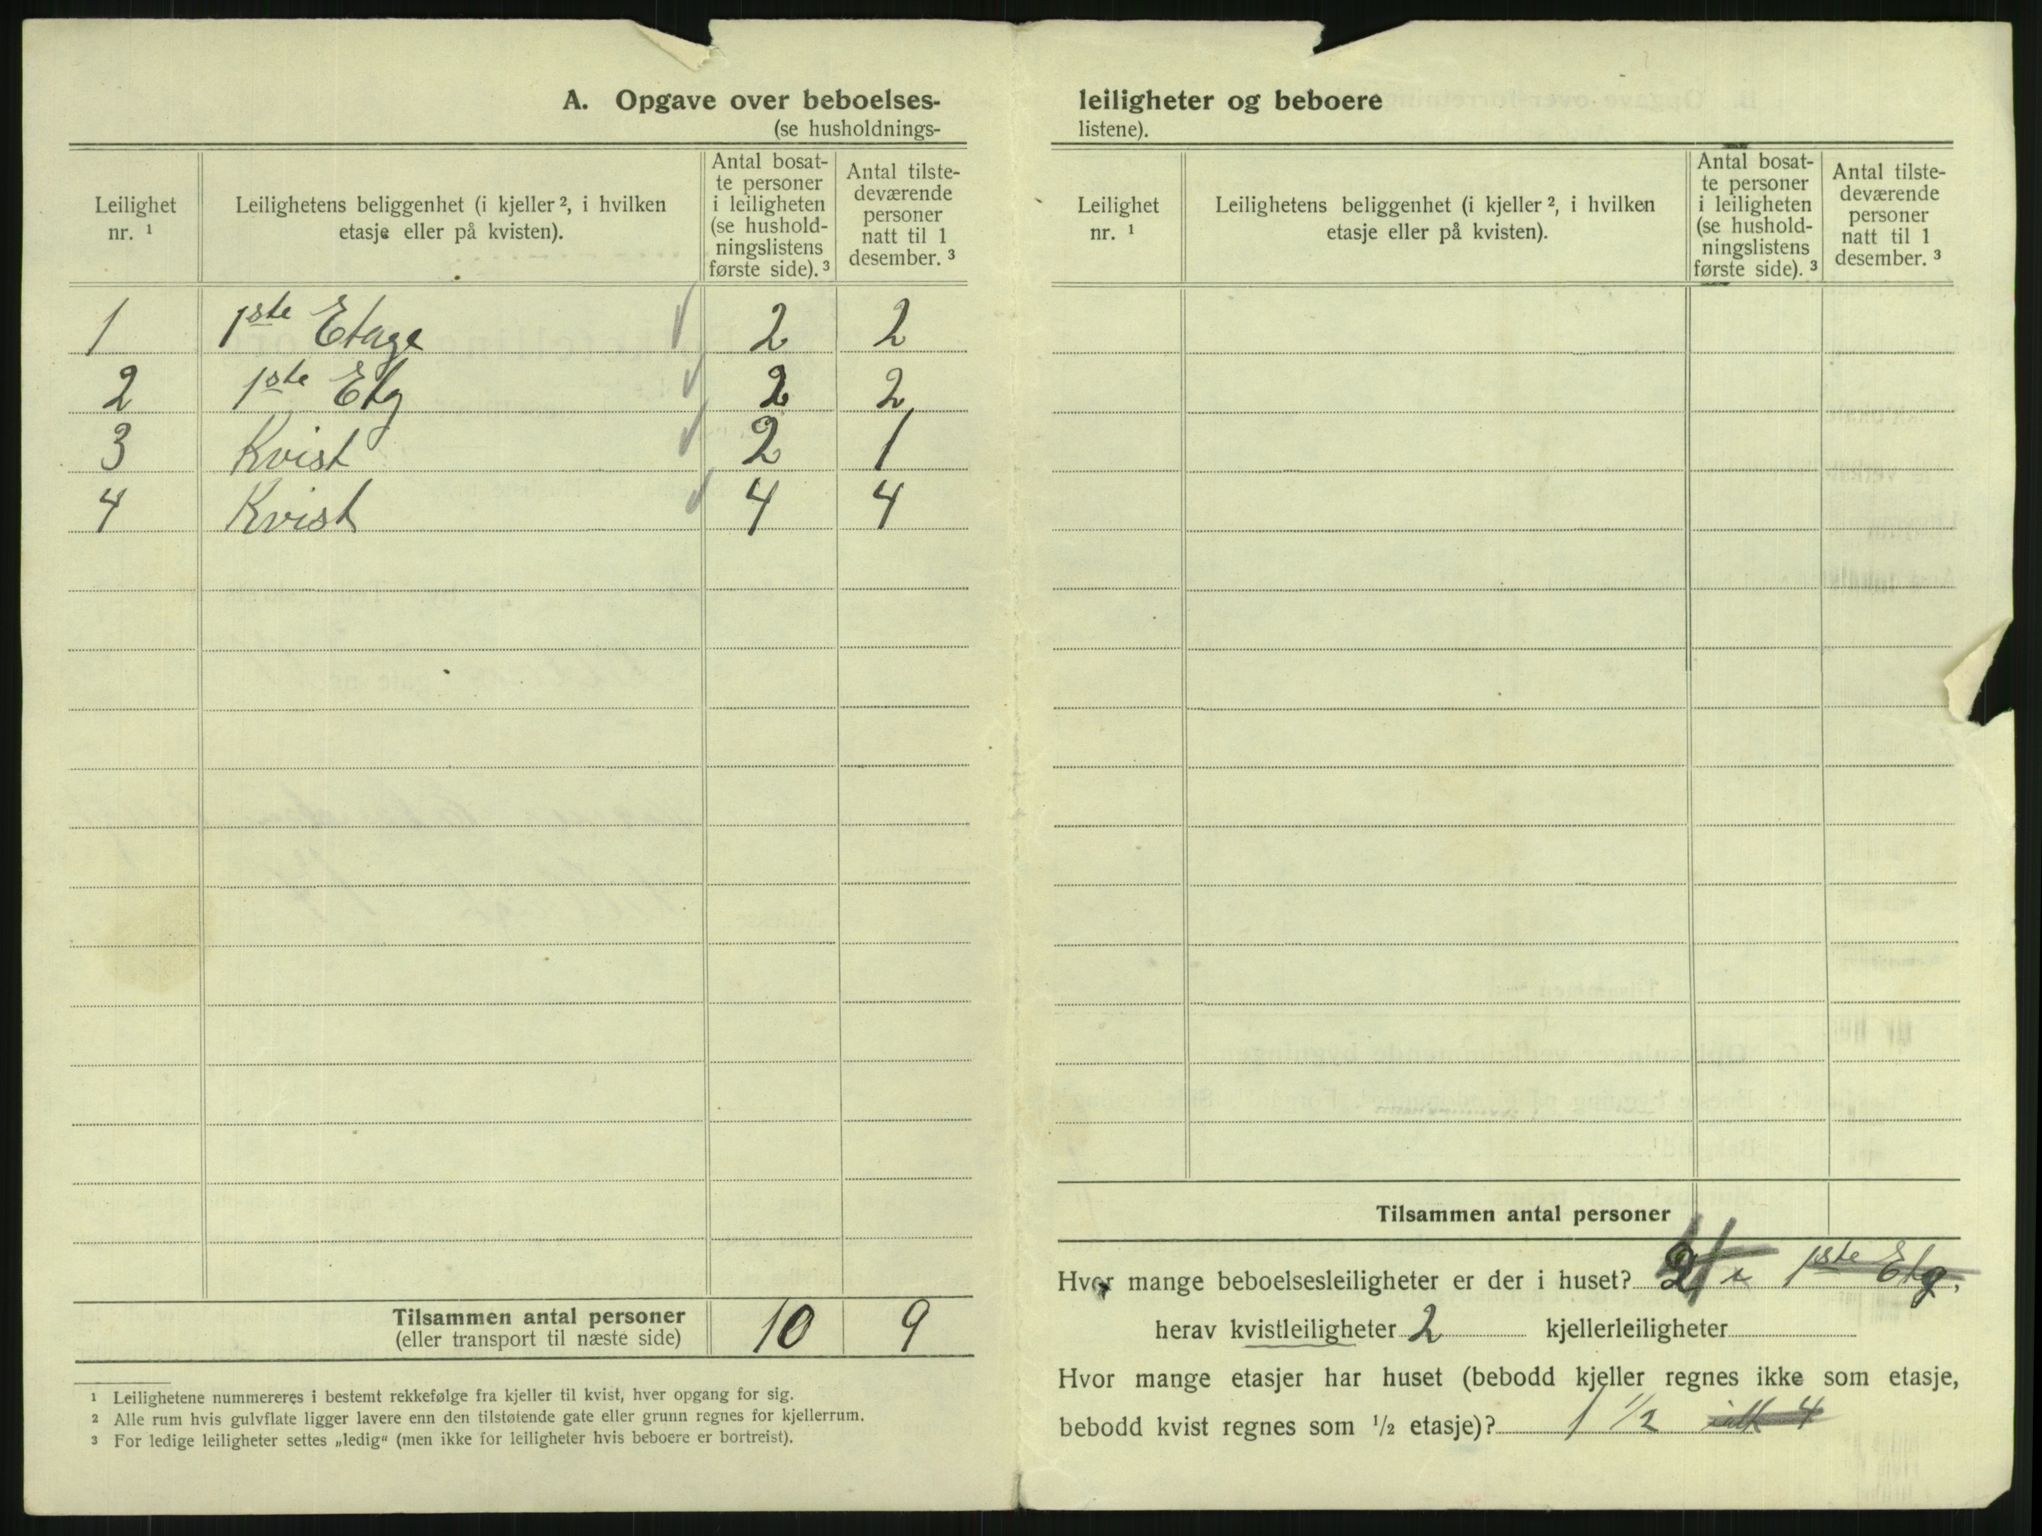 A. Opgave over beboelses-
(se husholdnings-
Leilighet nr. ¹
Leilighetens beliggenhet (i kjeller ², i hvilken etasje eller på kvisten).
Antal bosat-
te personer
i leiligheten
(se hushold-
ningslistens
første side). ³
Antal tilste-
deværende
personer
natt til 1
desember. ³
1 1ste Etage 2 2
2 1ste Etg 2 2
3 Kvist 2 1
4 Kvist 4 4
Tilsammen antal personer 10 9
(eller transport til næste side)
¹ Leilighetene nummereres i bestemt rekkefølge fra kjeller til kvist, hver opgang for sig.
² Alle rum hvis gulvflate ligger lavere enn den tilstøtende gate eller grunn regnes for kjellerrum.
³ For ledige leiligheter settes „ledig“ (men ikke for leiligheter hvis beboere er bortreist).
leiligheter og beboere
listene).
Leilighet nr. ¹
Leilighetens beliggenhet (i kjeller ², i hvilken etasje eller på kvisten).
Antal bosat-
te personer
i leiligheten
(se hushold-
ningslistens
første side). ³
Antal tilste-
deværende
personer
natt til 1
desember. ³
Tilsammen antal personer
Hvor mange beboelsesleiligheter er der i huset? 1ste Etg,
herav kvistleiligheter 2 kjellerleiligheter
Hvor mange etasjer har huset (bebodd kjeller regnes ikke som etasje,
bebodd kvist regnes som ½ etasje)? 1 1/2 ialt 4